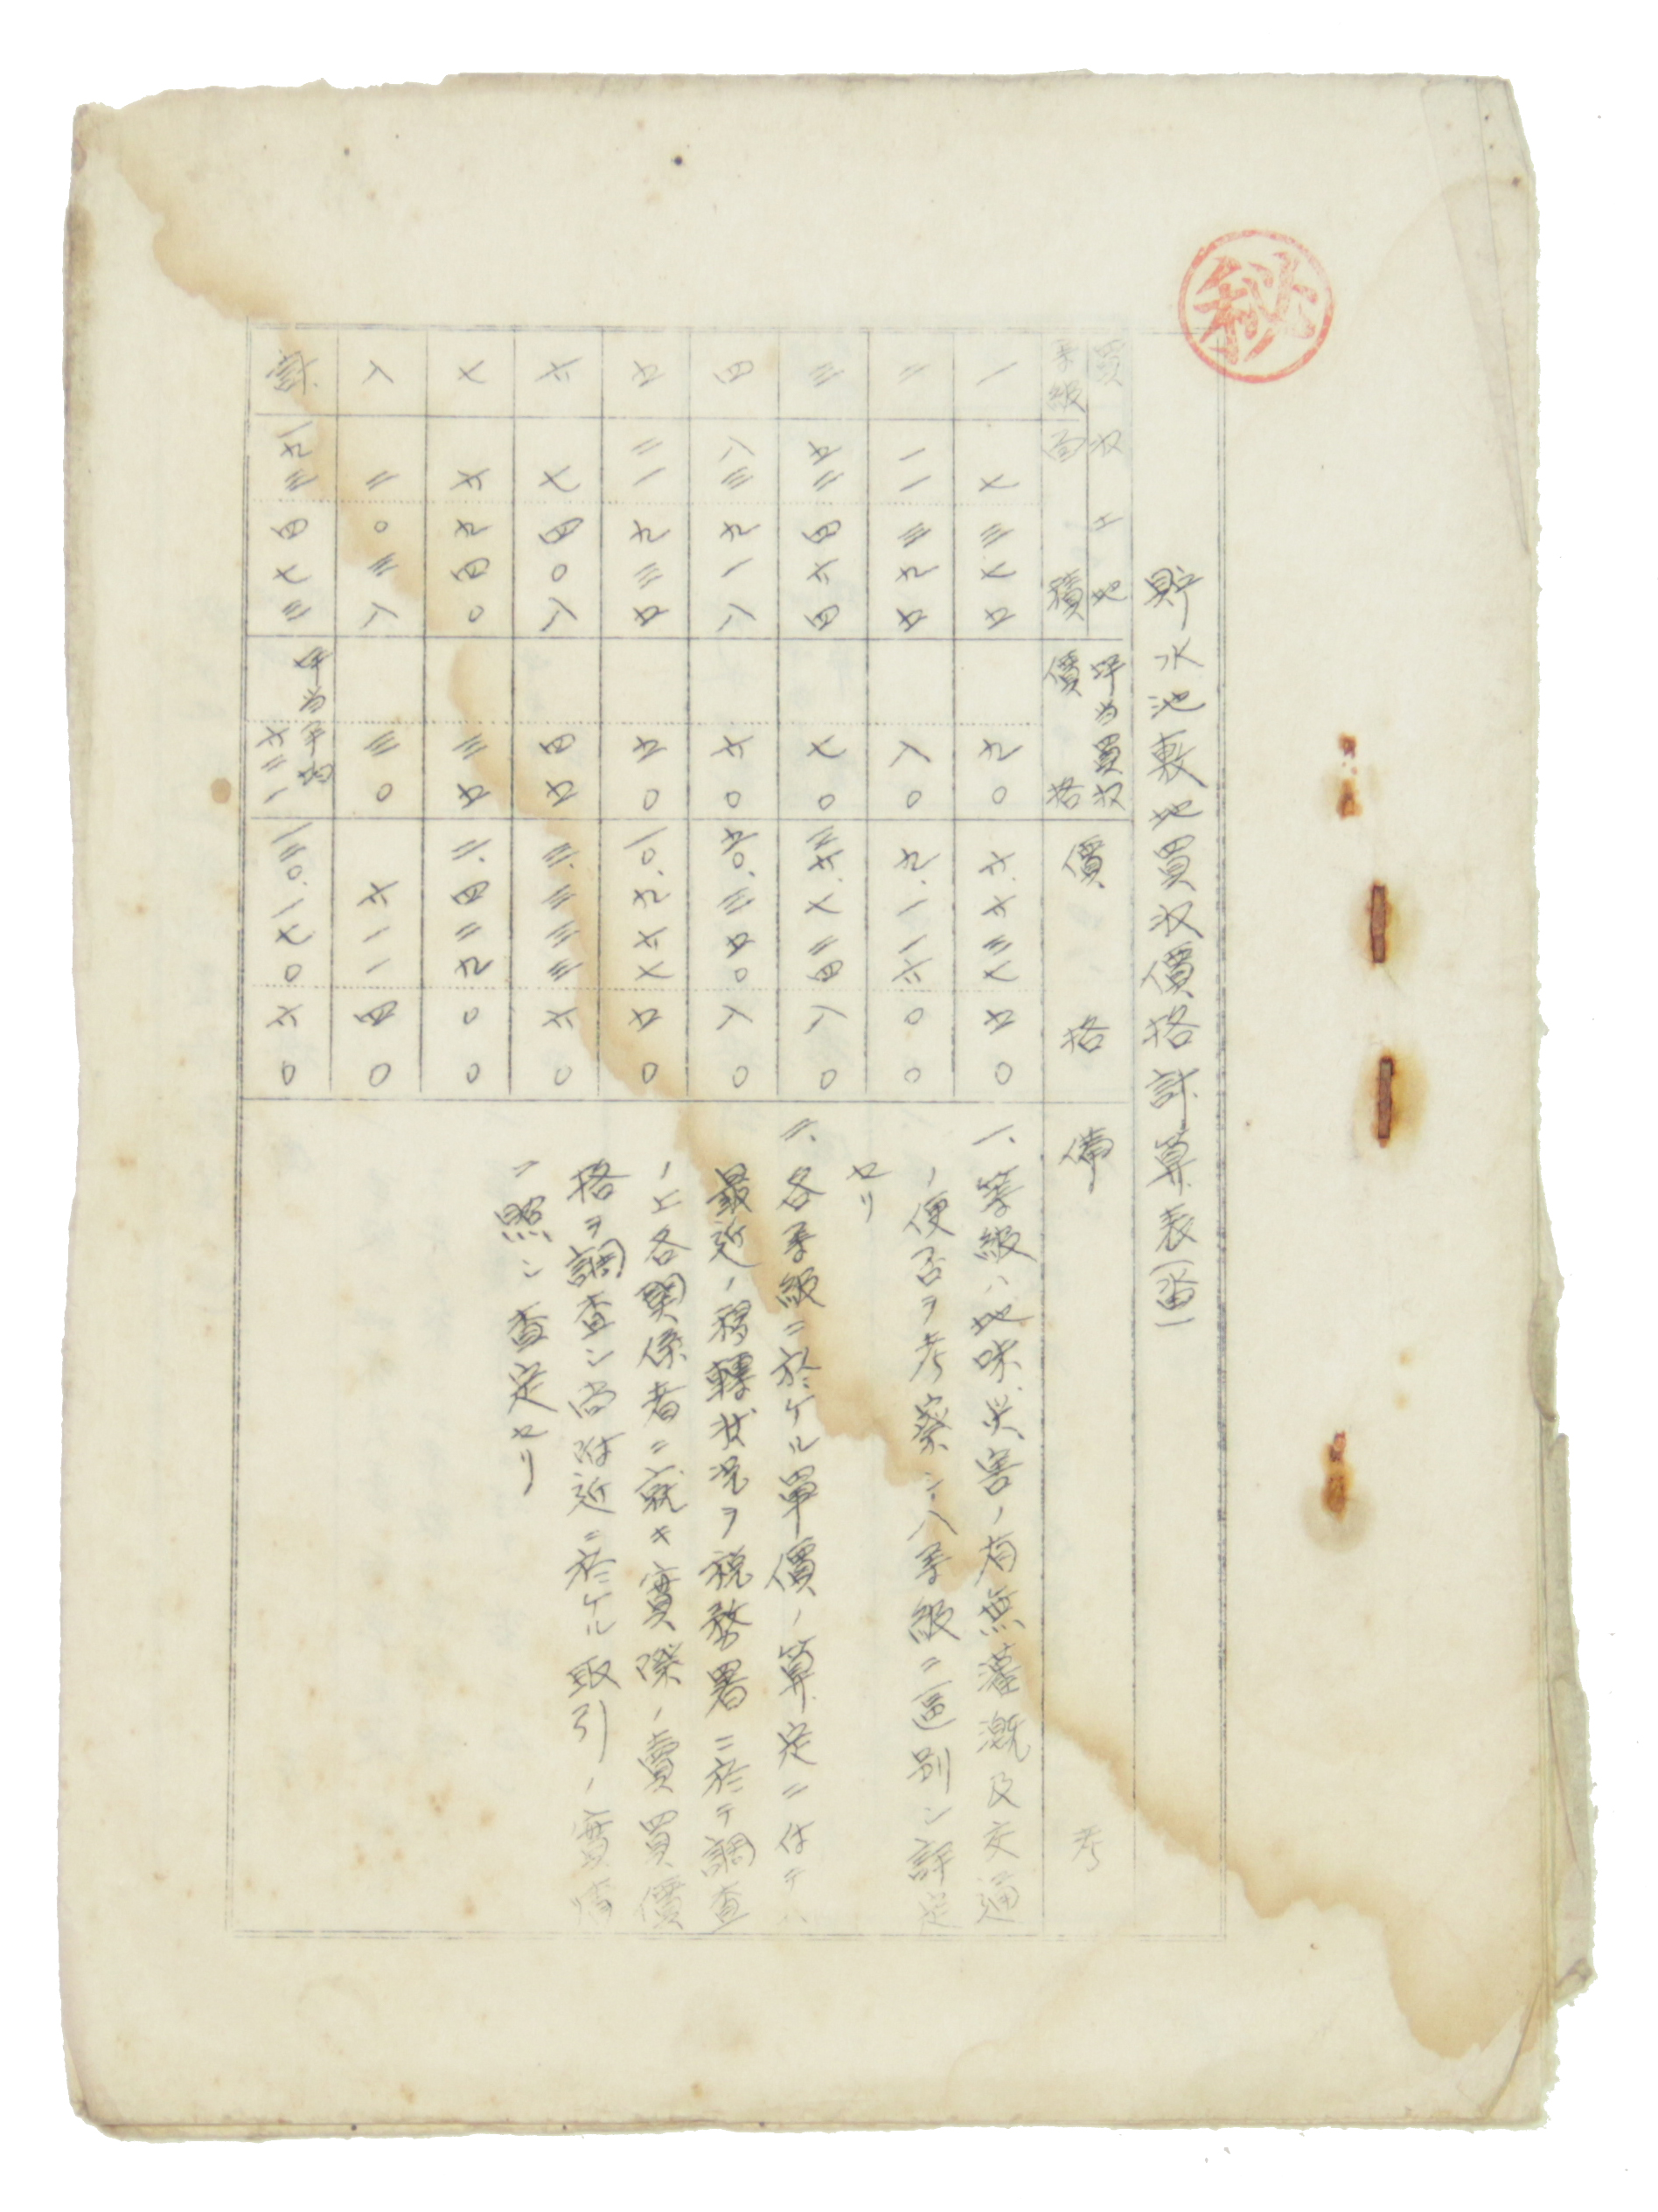 秘
貯水池敷地買収價格計算表(畓)
買収土地
等級 面積
坪当買収
價格
價格
備考
一 七 三七五 九〇 六、六三七 五〇
二 一一 三九五 八〇 九、一一六 〇〇
三 五二 四六四 七〇 三六、七二四 八〇
四 八三 九一八 六〇 五〇、三五〇 八〇
五 二一 九三五 五〇 一〇、九六七 五〇
六 七 四〇八 四五 三、三三三 六〇
七 六 九四〇 三五 二、四二九 〇〇
八 二 〇三八 三〇 六一一 四〇
計 一九三 四七三 坪当平均 六二一 一二〇、一七〇 六〇
一、等級ハ地味災害ノ有無灌漑及交通
ノ便否ヲ考察シ八等級ニ區別シ評定
セリ
二、各等級ニ於ケル單價ノ算定ニ付テハ
最近ノ移轉状况ヲ税務署ニ於テ調査
ノ上各関係者ニ就キ實際ノ賣買價
格ヲ調査シ尚附近ニ於ケル取引ノ實情
ニ照シ査定セリ